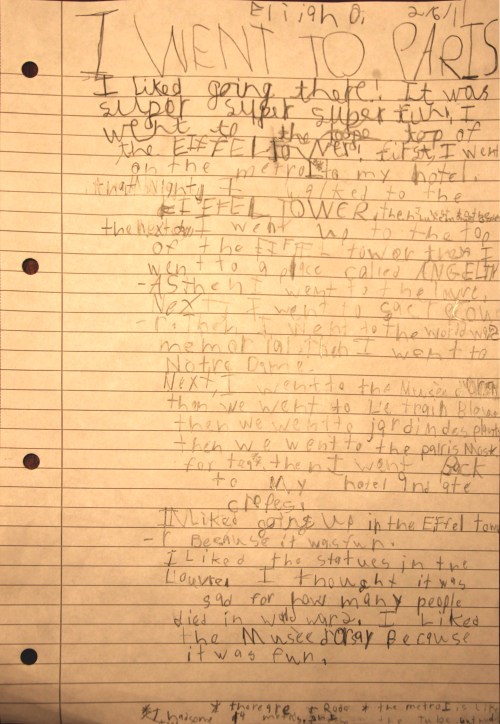 Elijah O. 2/6/11
I WENT TO PARIS
I liked going there! It was
super super super fun. I
went to the top of
the EIFFEL tower! first, I went
on the metro to my hotel.
that night I walked to the
EIFFEL TOWER, then
the next day I went up to the top
of the EIFFEL tower then I
went to a place called ANGELIN
-AS then I went to the luvre.
Next, I went to sacrecow
-r. then I went to the world war 2
memorial. then I went to
Notre Dame.
Next, I went to the Museé
then we went to Le train Bleue
then we went to jardin des plants
then we went to the paris Mosk
for tea. then I went Back
to My hotel and ate
crepes.
I Liked going up in the Effel tow
-r Because it was fun.
I Liked the statues in the
Louvre. I thought it was
sad for how many people
died in world war 2. I Liked
the Museé dOrsay Because
it was fun.
* there are * the metro I